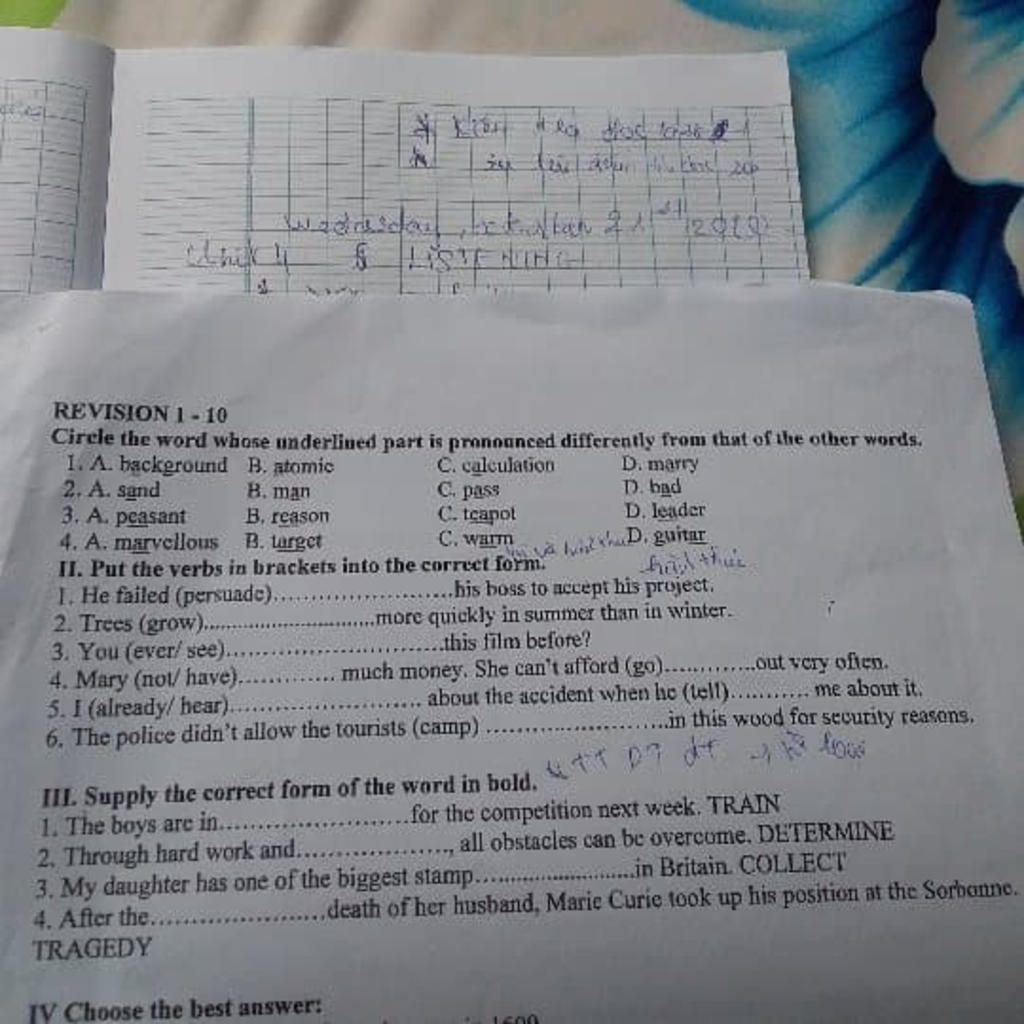 Wednesday
LISTENING
REVISION 1 - 10
Circle the word whose underlined part is pronounced differently from that of the other words.
1. A. background B. atomic C. calculation D. marry
2. A. sand B. man C. pass D. bad
3. A. peasant B. reason C. teapot D. leader
4. A. marvellous B. target C. warm D. guitar
II. Put the verbs in brackets into the correct form.
1. He failed (persuade)........................his boss to accept his project.
2. Trees (grow)..............................more quickly in summer than in winter.
3. You (ever/ see).............................this film before?
4. Mary (not/ have)............. much money. She can't afford (go)............out very often.
5. I (already/ hear).......................... about the accident when he (tell).......... me about it.
6. The police didn't allow the tourists (camp) ........................in this wood for security reasons.
III. Supply the correct form of the word in bold.
1. The boys are in.........................for the competition next week. TRAIN
2. Through hard work and...................., all obstacles can be overcome. DETERMINE
3. My daughter has one of the biggest stamp..........................in Britain. COLLECT
4. After the.......................death of her husband, Marie Curie took up his position at the Sorbonne.
TRAGEDY
IV Choose the best answer: